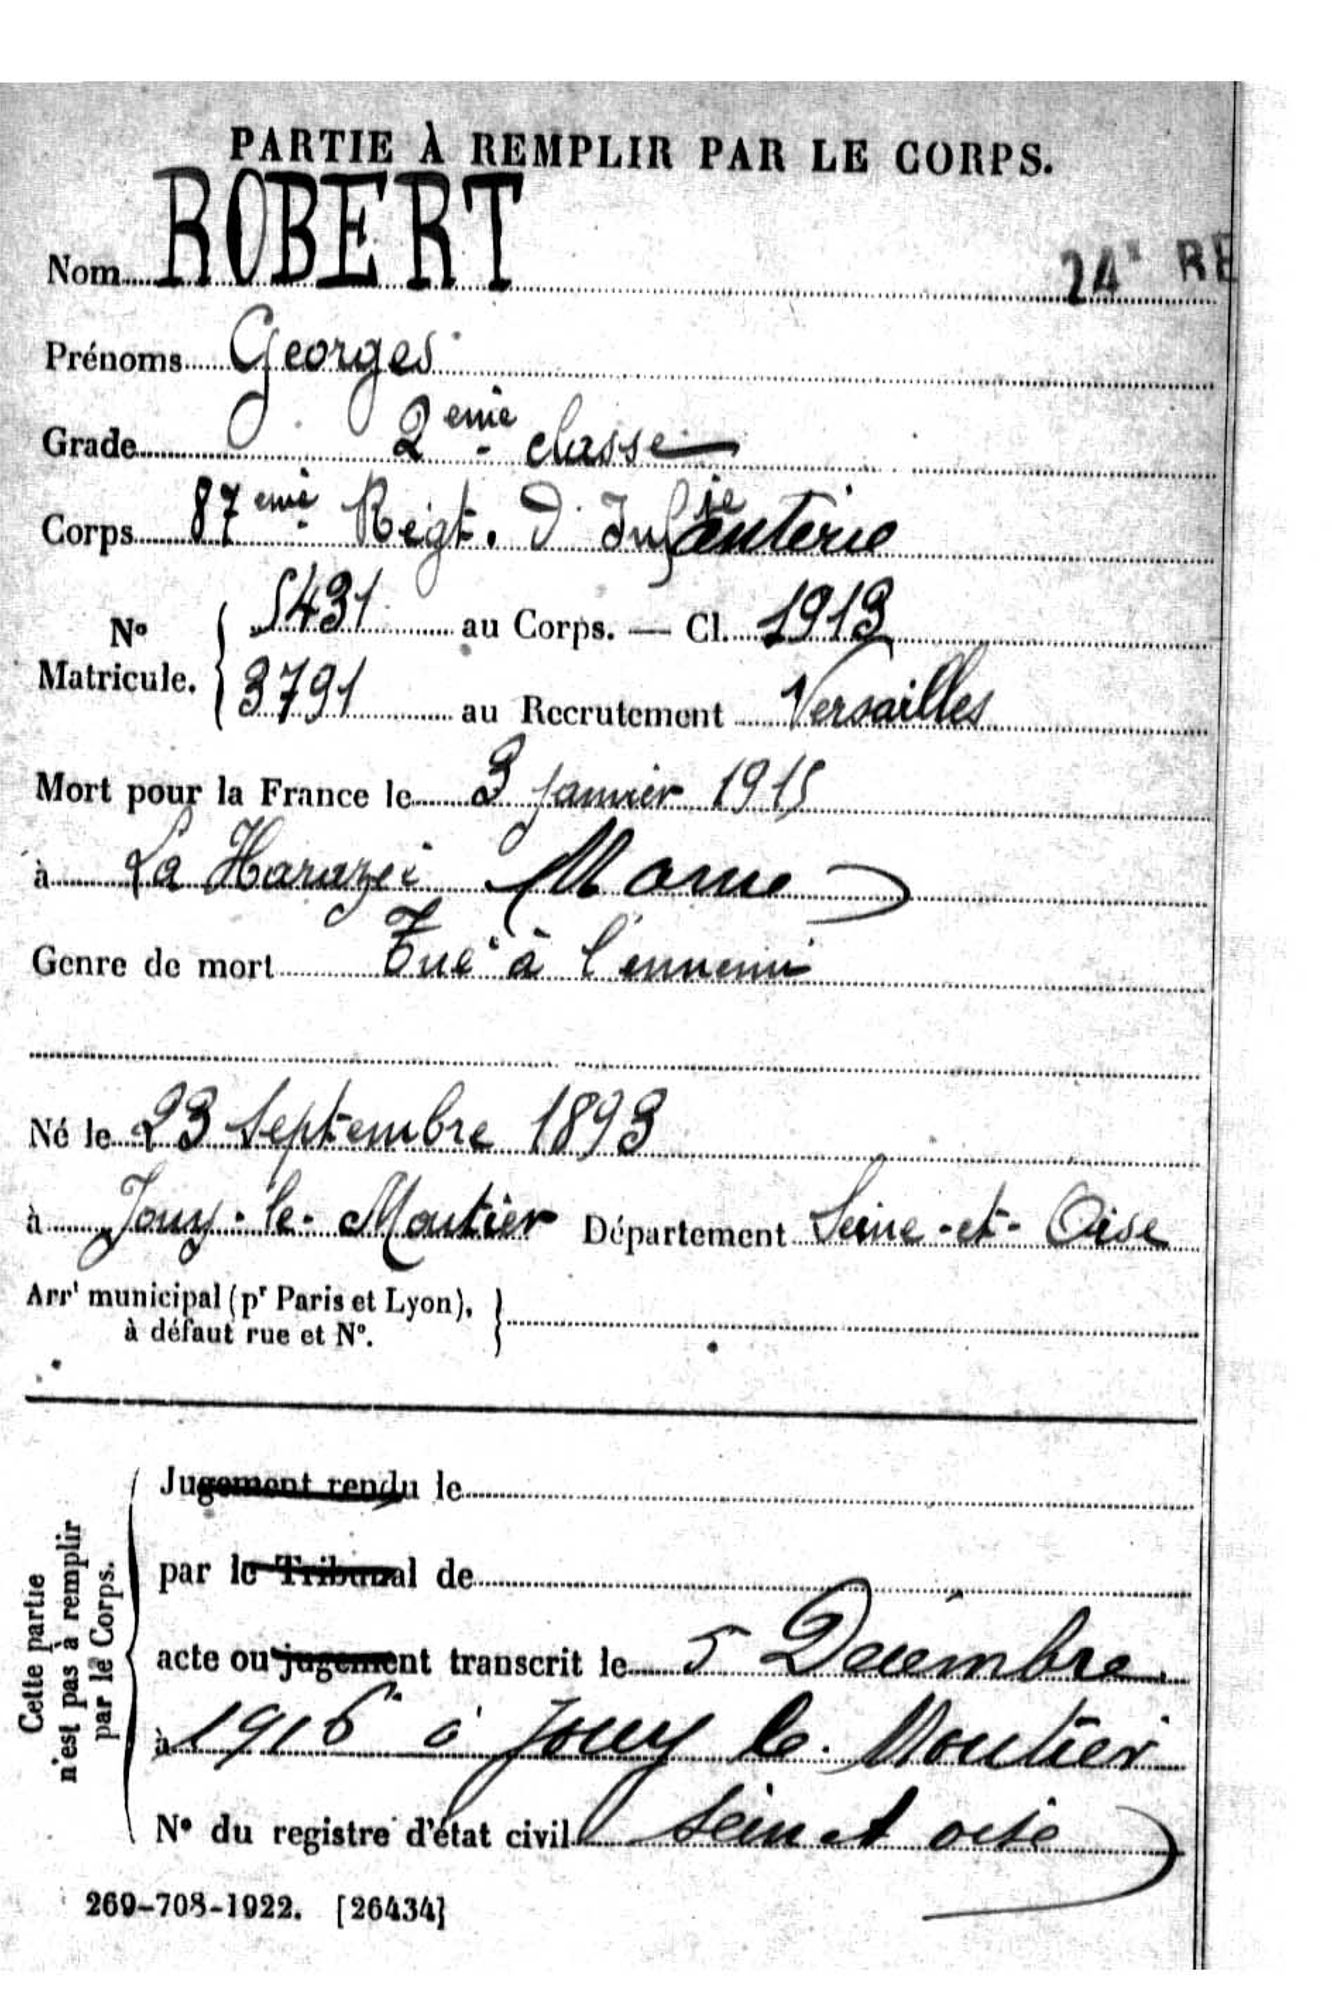 PARTIE À REMPLIR PAR LE CORPS.
Nom ROBERT
24e RE
Prénoms Georges
Grade 2eme classe
Corps 87eme Regt. d'Infanterie
No Matricule. { 5431 au Corps. — Cl. 1913
3791 au Recrutement Versailles
Mort pour la France le 3 Janvier 1915
à La Harazée Marne
Genre de mort Tué à l'ennemi
Né le 23 Septembre 1893
à Jouy-le-Moutier Département Seine-et-Oise
Arrt municipal (pr Paris et Lyon), }
à défaut rue et No.
Cette partie
n'est pas à remplir
par le Corps.
Jugement rendu le
par le Tribunal de
acte ou jugement transcrit le 5 Décembre
à 1916 à Jouy le Moutier
No du registre d'état civil Sein et oise
269-708-1922. [26434]